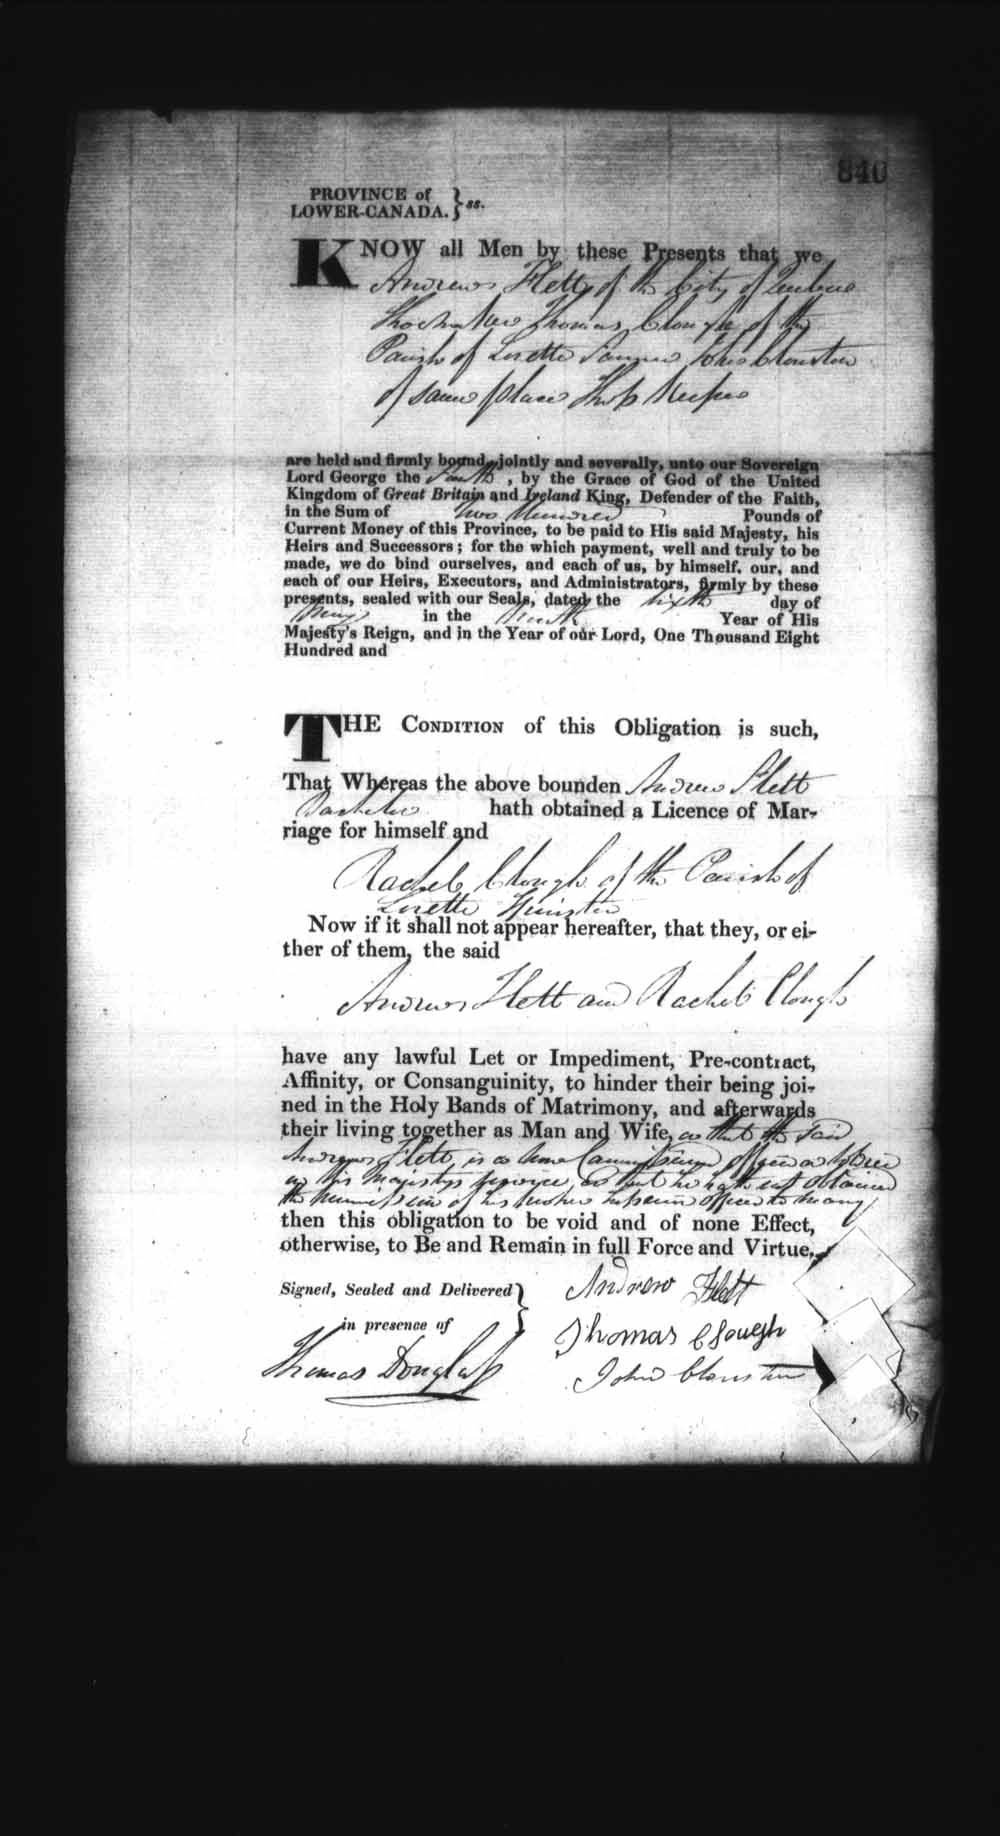 840
PROVINCE of
LOWER-CANADA. } ss.
KNOW all Men by these Presents that we
Andrew Flett of the City of Quebec
Shoemaker Thomas Clough of the
Parish of Lorette Farmer John Clouston
of same place Shop Keeper
are held and firmly bound, jointly and severally, unto our Sovereign
Lord George the Fourth, by the Grace of God of the United
Kingdom of Great Britain and Ireland King, Defender of the Faith,
in the Sum of Two Hundred Pounds of
Current Money of this Province, to be paid to His said Majesty, his
Heirs and Successors; for the which payment, well and truly to be
made, we do bind ourselves, and each of us, by himself, our, and
each of our Heirs, Executors, and Administrators, firmly by these
presents, sealed with our Seals, dated the sixth day of
in the Year of His
Majesty's Reign, and in the Year of our Lord, One Thousand Eight
Hundred and
THE CONDITION of this Obligation is such,
That Whereas the above bounden Andrew Flett
Bachelor hath obtained a Licence of Mar-
riage for himself and
Rachel Clough of the Parish of
Lorette Spinster
Now if it shall not appear hereafter, that they, or ei-
ther of them, the said
Andrew Flett and Rachel Clough
have any lawful Let or Impediment, Pre-contract,
Affinity, or Consanguinity, to hinder their being joi-
ned in the Holy Bands of Matrimony, and afterwards
their living together as Man and Wife, or that the said
Andrew Flett is a Non Commissioned officer or Soldier
in his Majestys service, or that he hath not obtained
the permission of his officer to marry
then this obligation to be void and of none Effect,
otherwise, to Be and Remain in full Force and Virtue.
Signed, Sealed and Delivered }
in presence of
Andrew Flett
Thomas Clough
Thomas Douglass
John Clouston